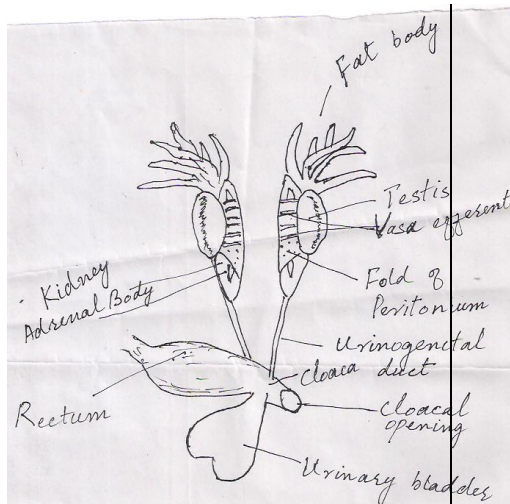 Fat body
Testis
Vasa efferent
Kidney
Adrenal Body
Fold of
Peritonium
Urinogenital
duct
Cloaca
Rectum
Cloacal
opening
Urinary bladder